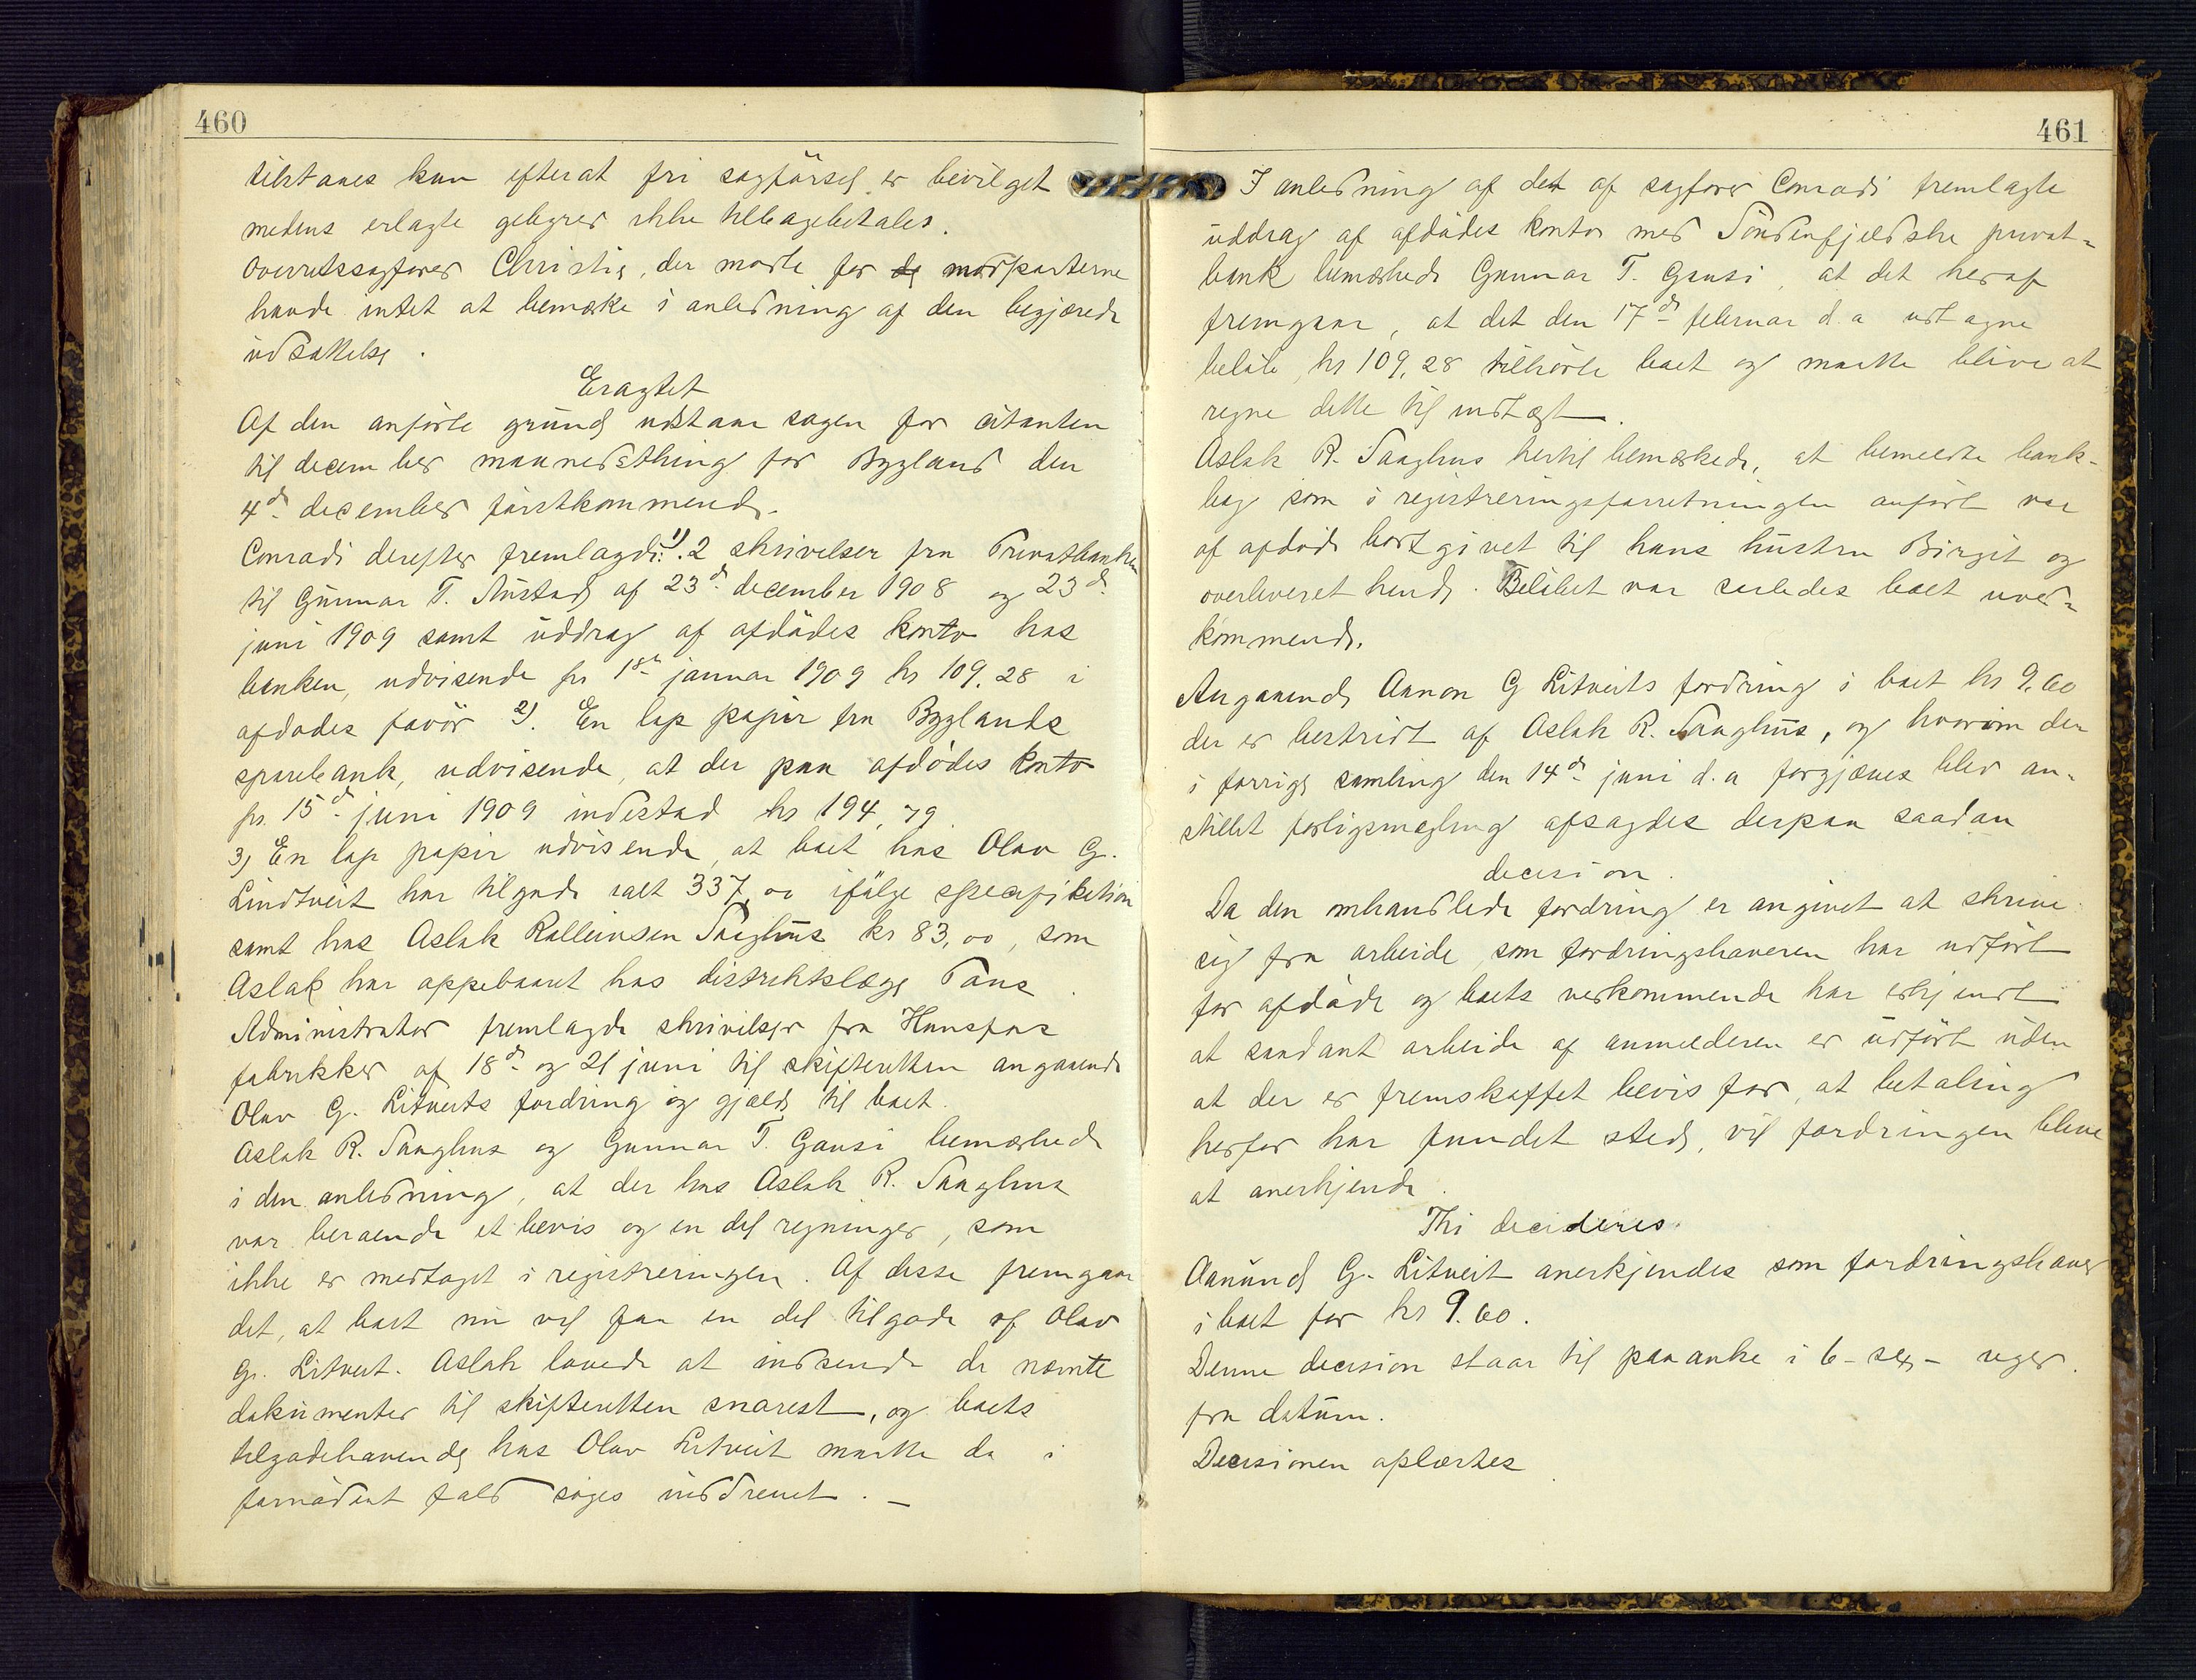 460
tilstaaes kun efterat fri sagførsel er bevilget
medens erlagte gebyrer ikke tilbagebetales.
Overretssagfører Christie, der mødte for de modparterne
havde intet at bemærke i anledning af den begjærede
udsættelse.
Eragtet
Af den anførte grund udstaar sagen for citanten
til december maanedsthing for Bygland den
4de december førstkommende.
Conradi derefter fremlagde: 1). 2 skrivelser fra Privatbanken
til Gunnar T. Austad af 23de december 1908 og 23de
juni 1909 samt uddrag af afdødes konto hos
banken, udvisende pr 1ste januar 1909 kr 109,28 i
afdødes favør 2). En lap papir fra Byglands
sparebank, udvisende, at der paa afdødes konto
pr. 15de juni 1909 indestod kr 194,79
3) En lap papir udvisende, at boet hos Olav G.
Lindtveit har tilgode ialt 337,00 ifølge specifikation
samt hos Aslak Rolleivsen Saaghus kr 83,00, som
Aslak har oppebaaret hos distriktslæge Paus.
Administrator fremlagde skrivelser fra Hunsfos
fabrikker af 18de og 21 juni til skifteretten angaaende
Olav G. Litveits fordring og gjæld til boet.
Aslak R. Saaghus og Gunnar T. Gausi bemærkede
i den anledning, at der hos Aslak R. Saaghus
var beroende et bevis og en del regninger, som
ikke er medtaget i registreringen. Af disse fremgaar
det, at boet nu vil faa en del tilgode af Olav
G. Litveit. Aslak lovede at indsende de nævnte
dokumenter til skifteretten snarest, og boets
tilgodehavende hos Olav Litveit maatte da i
fornødent fald søges inddrevet. –
461
I anledning af det af sagfører Conradi fremlagte
uddrag af afdødes konto med Søndenfjeldske privat-
bank bemærkede Gunnar T. Gausi, at det heraf
fremgaar, at det den 17de februar d.a udtagne
beløb, kr 109,28 tilhørte boet og maatte blive at
regne dette til indtægt.
Aslak R. Saaghus hertil bemærkede, at bemeldte bank-
bog som i registreringsforretningen anført var
af afdøde bortgivet til hans hustru Birgit og
overleveret hende. Beløbet var saaledes boet uved-
kommende.
Angaaende Aanon G Litveits fordring i boet kr 9.60
der er bestridt af Aslak R. Saaghus, og hvorom der
i forrige samling den 14de juni d.a forgjæves blev an-
stillet forligsmægling afsagdes derpaa saadan
decision.
Da den omhandlede fordring er angivet at skrive
sig fra arbeide, som fordringshaveren har udført
for afdøde og boets vedkommende har erkjendt
at saadant arbeide af anmelderen er udført uden
at der er fremskaffet bevis for, at betaling
herfor har fundet sted, vil fordringen blive
at anerkjende.
Thi decideres:
Aanund G. Litveit anerkjendes som fordringshaver
i boet for kr 9.60.
Denne decision staar til paaanke i 6 – sex – uger
fra datum.
Decisionen oplæstes.